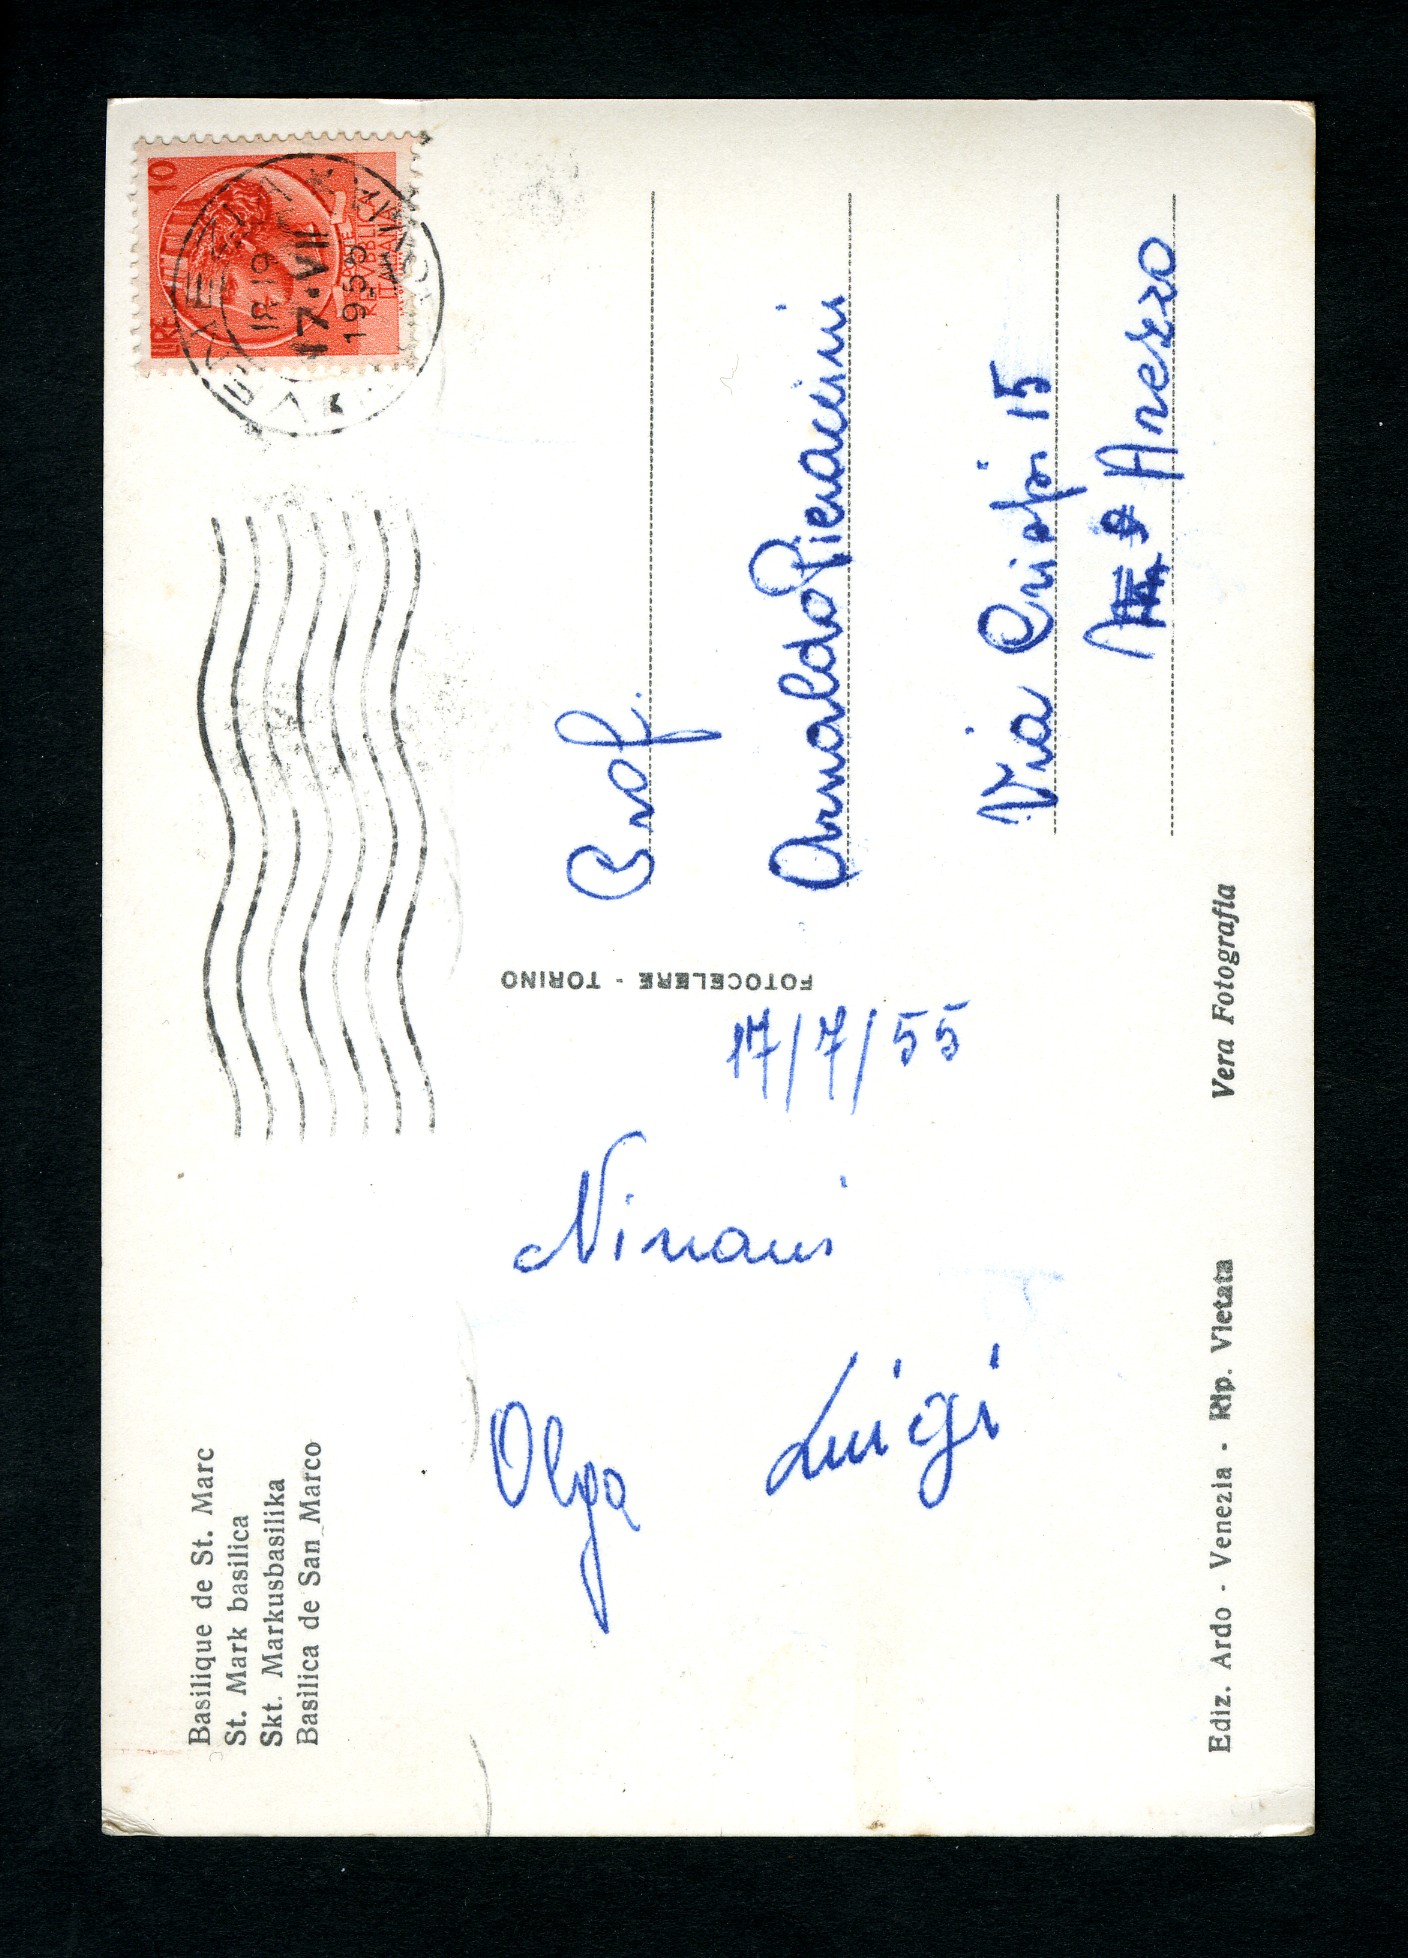 Basilique de St. Marc
St. Mark basilica
Skt. Markusbasilika
Basilica de San Marco
LIRE 10
POSTE
REPVBBLICA
ITALIANA
VENEZIA
18-19
17·VII
1955
FOTOCELERE - TORINO
17/7/55
Olga
Luigi
Prof.
Arnaldo Pieraccini
Via Crispi 15
Arezzo
Ediz. Ardo - Venezia - Rip. Vietata
Vera Fotografia